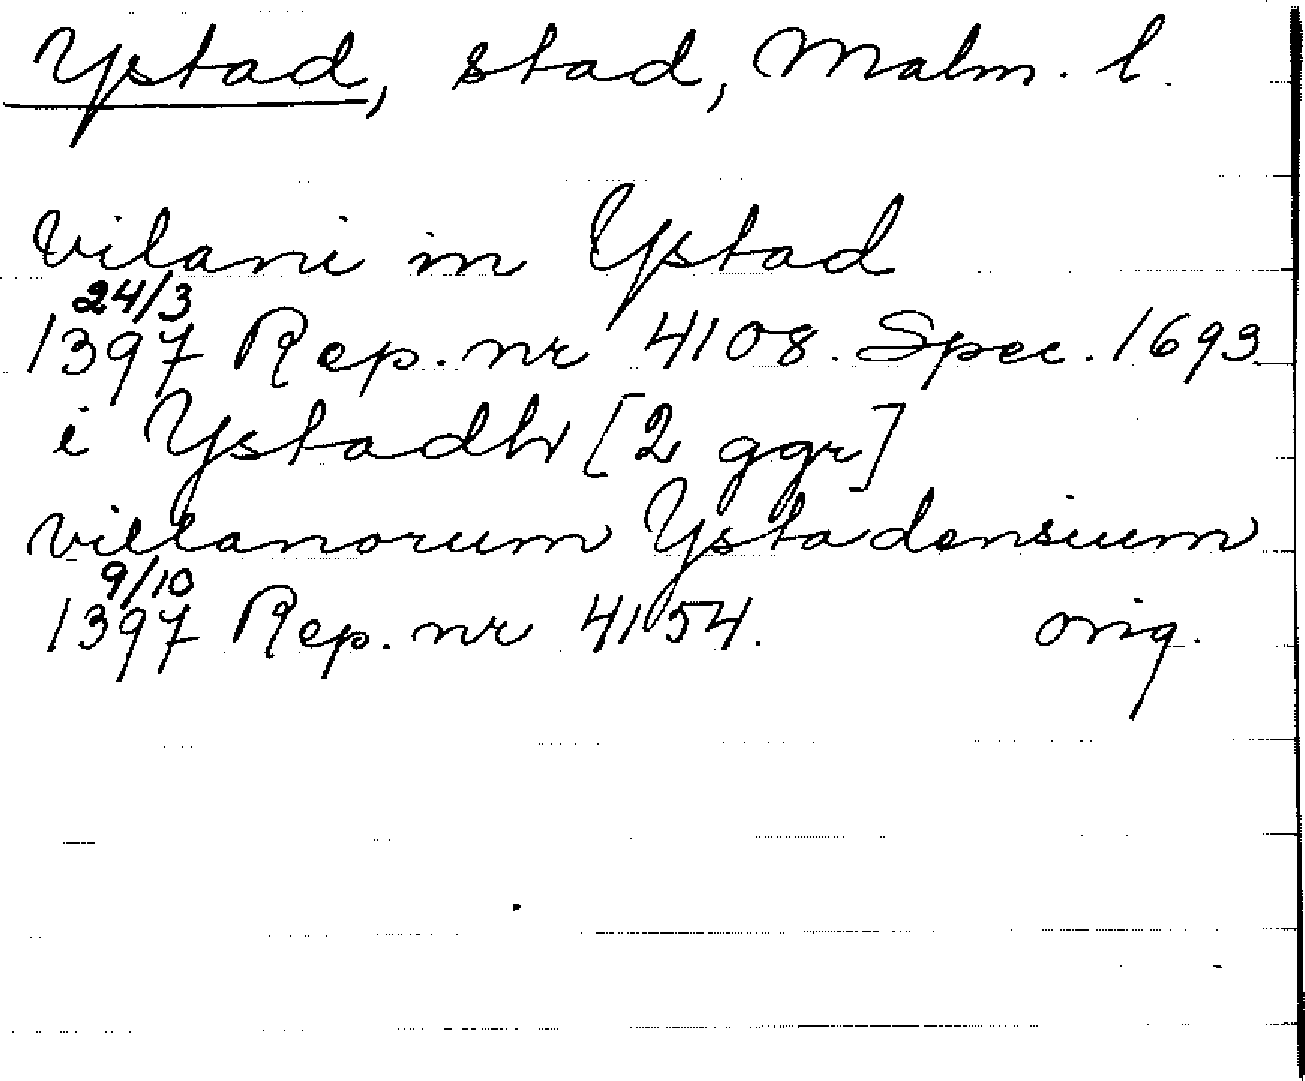 Ystad, stad, Malm. l.
vilani in Ystad
24/3
1397 Rep. nr 4108. Spec. 1693
i Ystadh [2 ggr]
villanorum Ystadensium
9/10
1397 Rep. nr 4154. orig.